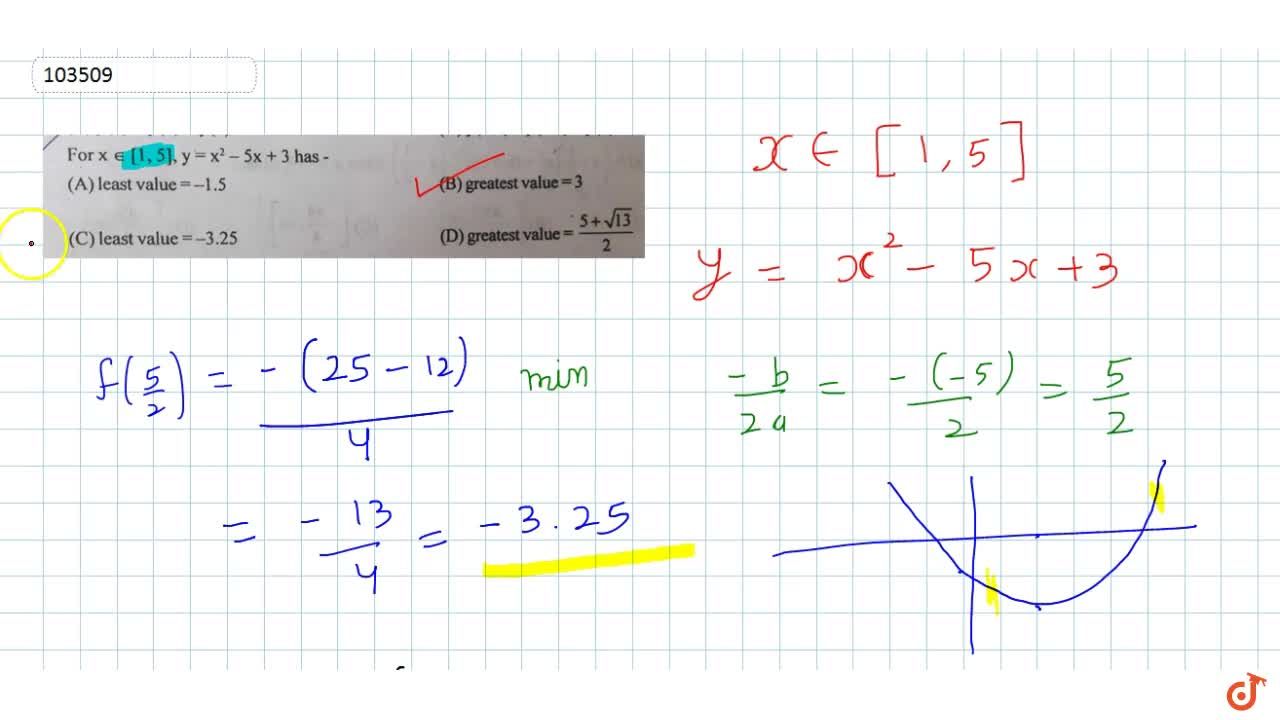 103509
For x ∈ [1, 5], y = x² – 5x + 3 has -
(A) least value = –1.5
(B) greatest value = 3
(C) least value = –3.25
(D) greatest value = (5 + √13)/2
x ∈ [1, 5]
y = x² - 5x + 3
f(5/2) = -(25 - 12)/4 min
-b/2a = -(-5)/2 = 5/2
= -13/4 = -3.25